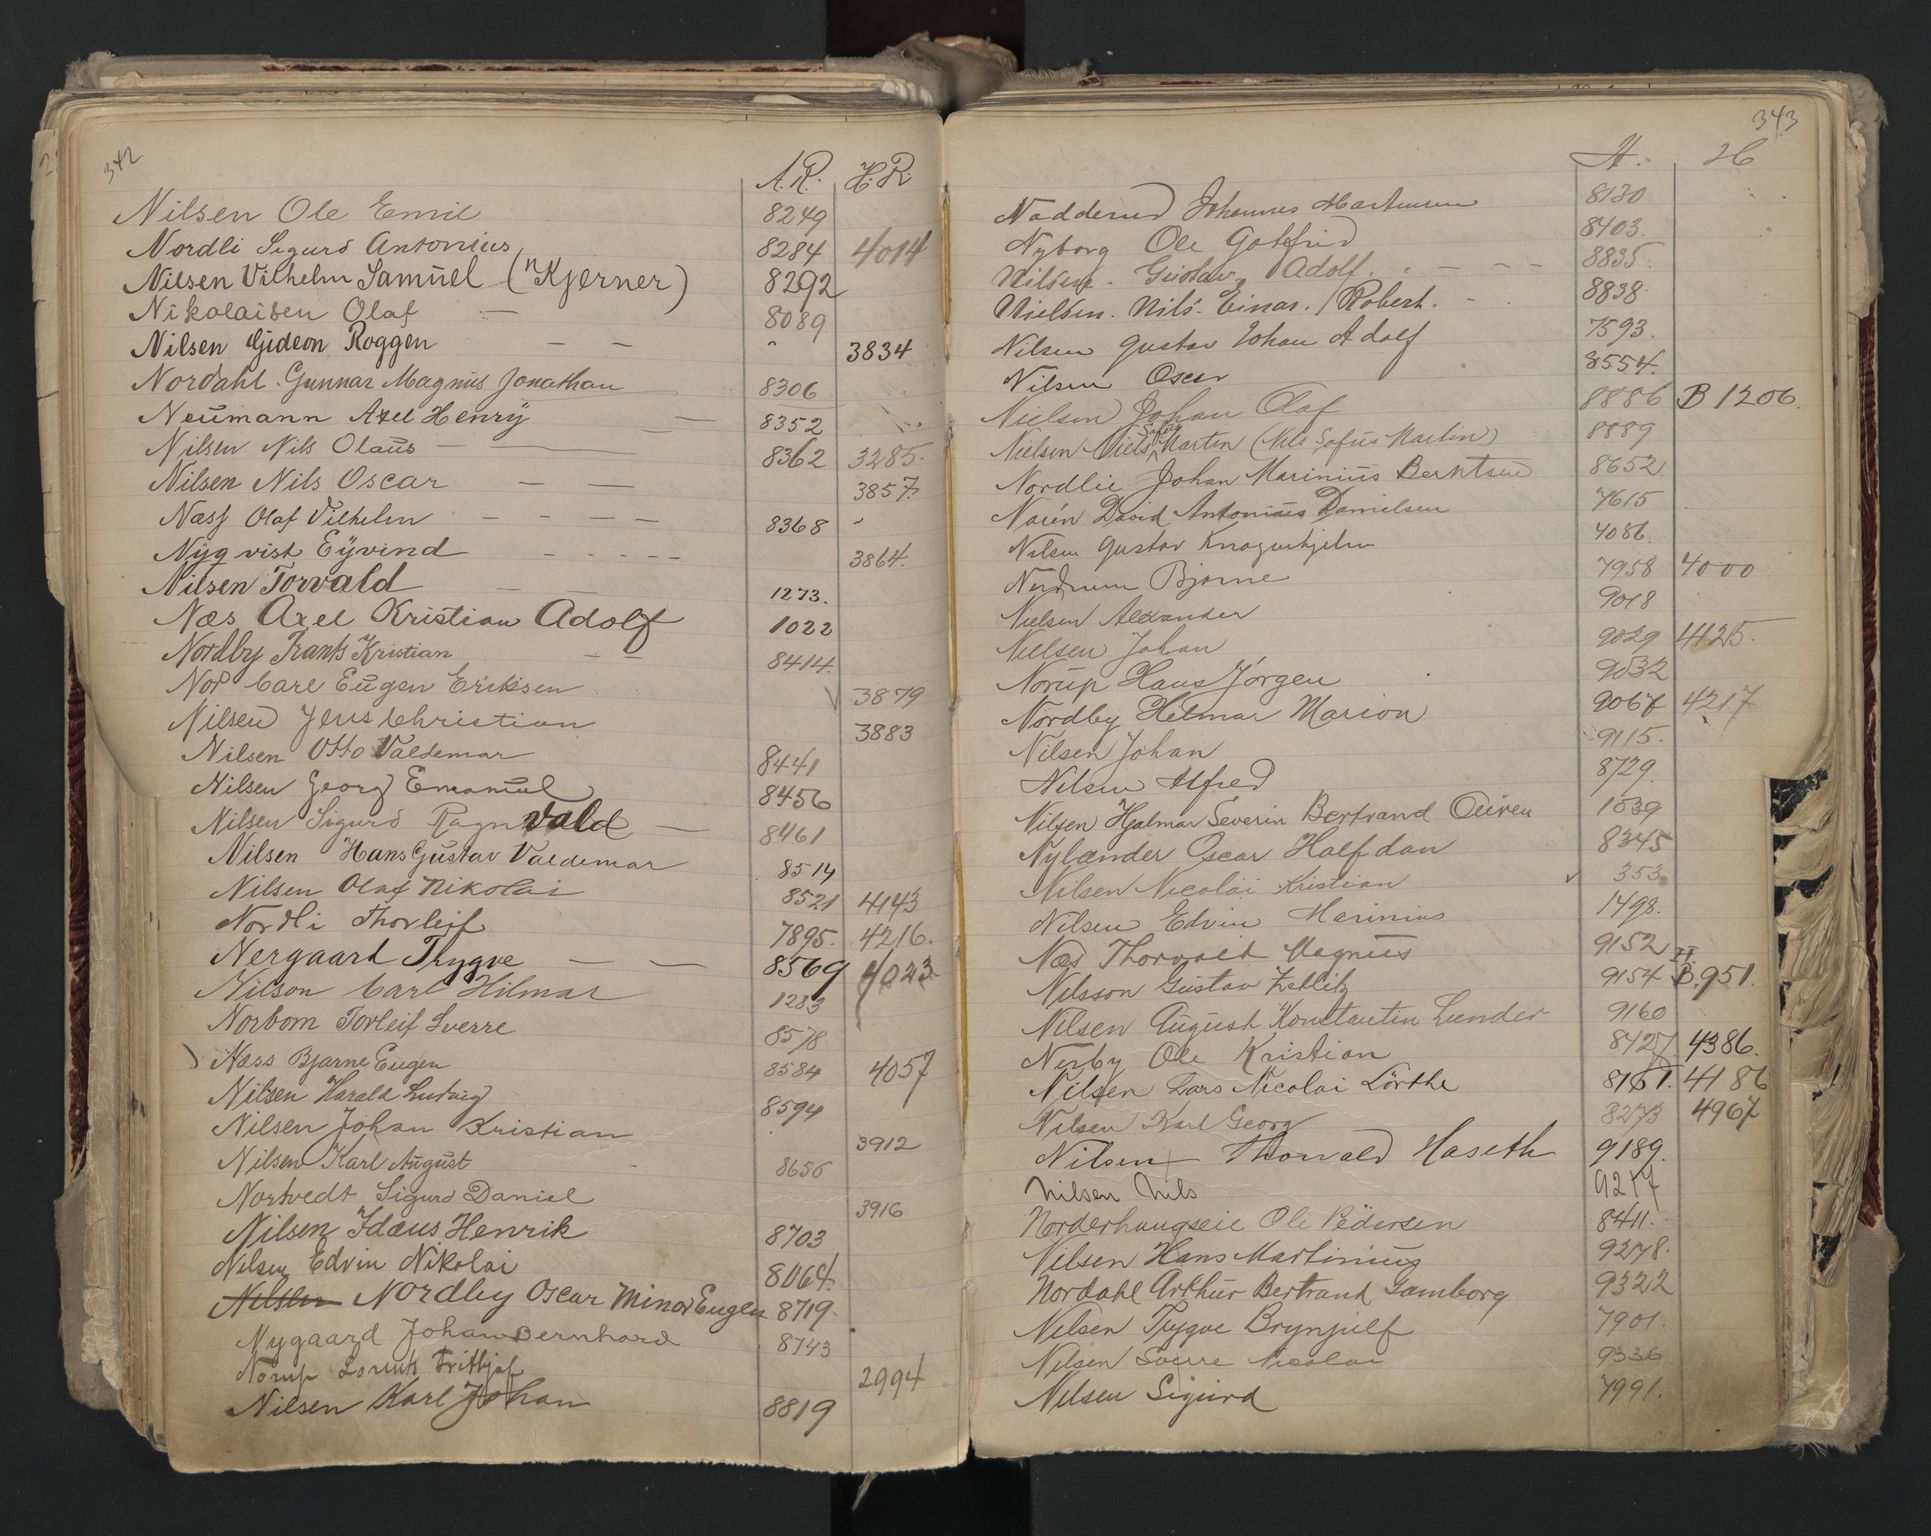 342
A.R. H.R.
Nilsen Ole Emil 8249
Nordli Sigurd Antonius 8284 4014
Nilsen Vilhelm Samuel ("Kjerner) 8292
Nikolaisen Olaf — 8089
Nilsen Gideon Roggen — — " 3834
Nordahl. Gunnar Magnus Jonathan 8306
Neumann Axel Henry — 8352
Nilsen Nils Olaus — — 8362 3285.
Nilsen Nils Oscar — — 3857.
Næss Olaf Vilhelm — — — — 8368
Nyqvist Eyvind - - - - - 3864.
Nilsen Torvald — — 1273.
Næs Axel Kristian Adolf 1022
Nordby Frants Kristian — — 8414.
Nor Carl Eugen Eriksen 3879
Nilsen Jens Christian 3883
Nilsen Otto Valdemar 8441
Nilsen Georg Emanuel 8456
Nilsen Sigurd Ragnvald — 8461
Nilsen Hans Gustav Valdemar 8514
Nilsen Olaf Nikolai 8521 4143
Nordli Thorleif 7895. 4216.
Nergaard Thygve — — 8569 4023
Nilson Carl Hilmar 1283
Norbom Torleif Sverre 8578
Næss Bjarne Eugen 8584 4057
Nilsen Harald Ludvig 8594
Nilsen Johan Kristian 3912
Nilsen Karl August 8656
Nortvedt Sigurd Daniel 3916
Nilsen Idæus Henrik 8703
Nilsen Edvin Nikolai 8064.
Nilsen Nordby Oscar Minor Eugen 8719.
Nygaard Johan Bernhard 8743
Norup Fritjof 2994
Nilsen Karl Johan 8819
343
A. H
Nadderud Johannes Martinsen 8130
Nyborg Ole Gotfred 8403.
Nilsen. Gustav Adolf. . — - - 8835.
Nielsen. Nils. Einar. Robert. - . 8838.
Nilsen Gustav Johan Adolf 7593.
Nilsen Oscar 8554.
Nielsen Johan Olaf 8886 B 1206.
Nielsen Niels Sofus Martin (Nils Sofus Martin) 8889
Nordlie Johan Marinius Berntsen 8652
Norén David Antonius Danielsen 7615
Nilsen Gustav Knagenhjelm 4086.
Nordrum Bjarne 7958 4000
Nielsen Alexander 9018
Nielsen Johan 9029 4125.
Norup Hans Jørgen 9032
Nordby Helmar Marion 9067 4217
Nilsen Johan 9115.
Nilsen Alfred 8729.
Nilsen Hjalmar Severin Bertrand Ouren 1039
Nylænder Oscar Halfdan 8345
Nilsen Nicolai Kristian 353
Nilsen Edvin Marinius 1498.
Næs Thorvald Magnus 9152
Nilsson Gustav Zetlitz 9154 B.II 951.
Nilsen August Konstantin Lunder 9160
Nerby Ole Kristian 8427 4386.
Nilsen Lars Nicolai Lörthe 8161. 4186
Nilsen Karl Georg 8273 4967
Nilsen Thorvald Haseth 9189.
Nilsen Nils 9217
Norderhaugseie Ole Pedersen 8411.
Nilsen Hans Martinius 9278.
Nordahl Arthur Bertrand Lamborg 9322
Nilsen Trygve Brynjulf 7901.
Nilsen Sverre Nicolai 9336
Nilsen Sigurd 7991.